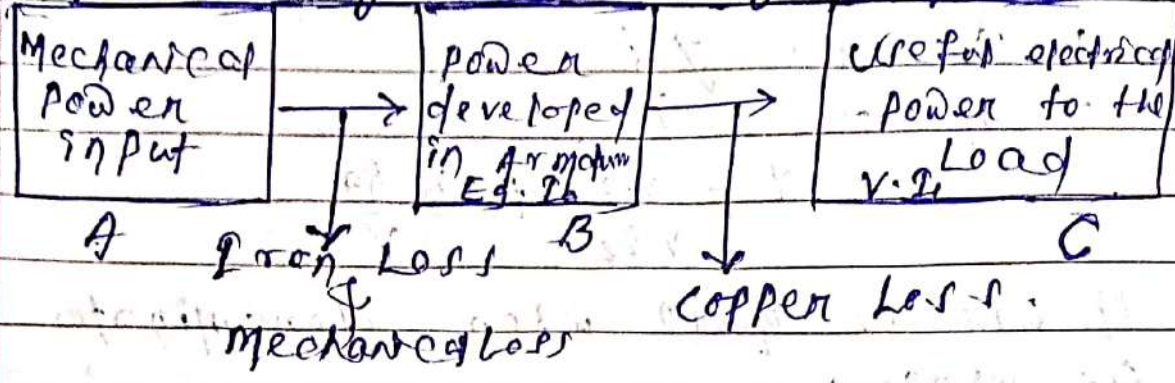 Mechanical
power
input
A
power
developed
in Armature
Eg. Ia
B
Useful electrical
power to the
Load
V. IL
C
Iron Loss
&
Mechanical Loss
Copper Loss.